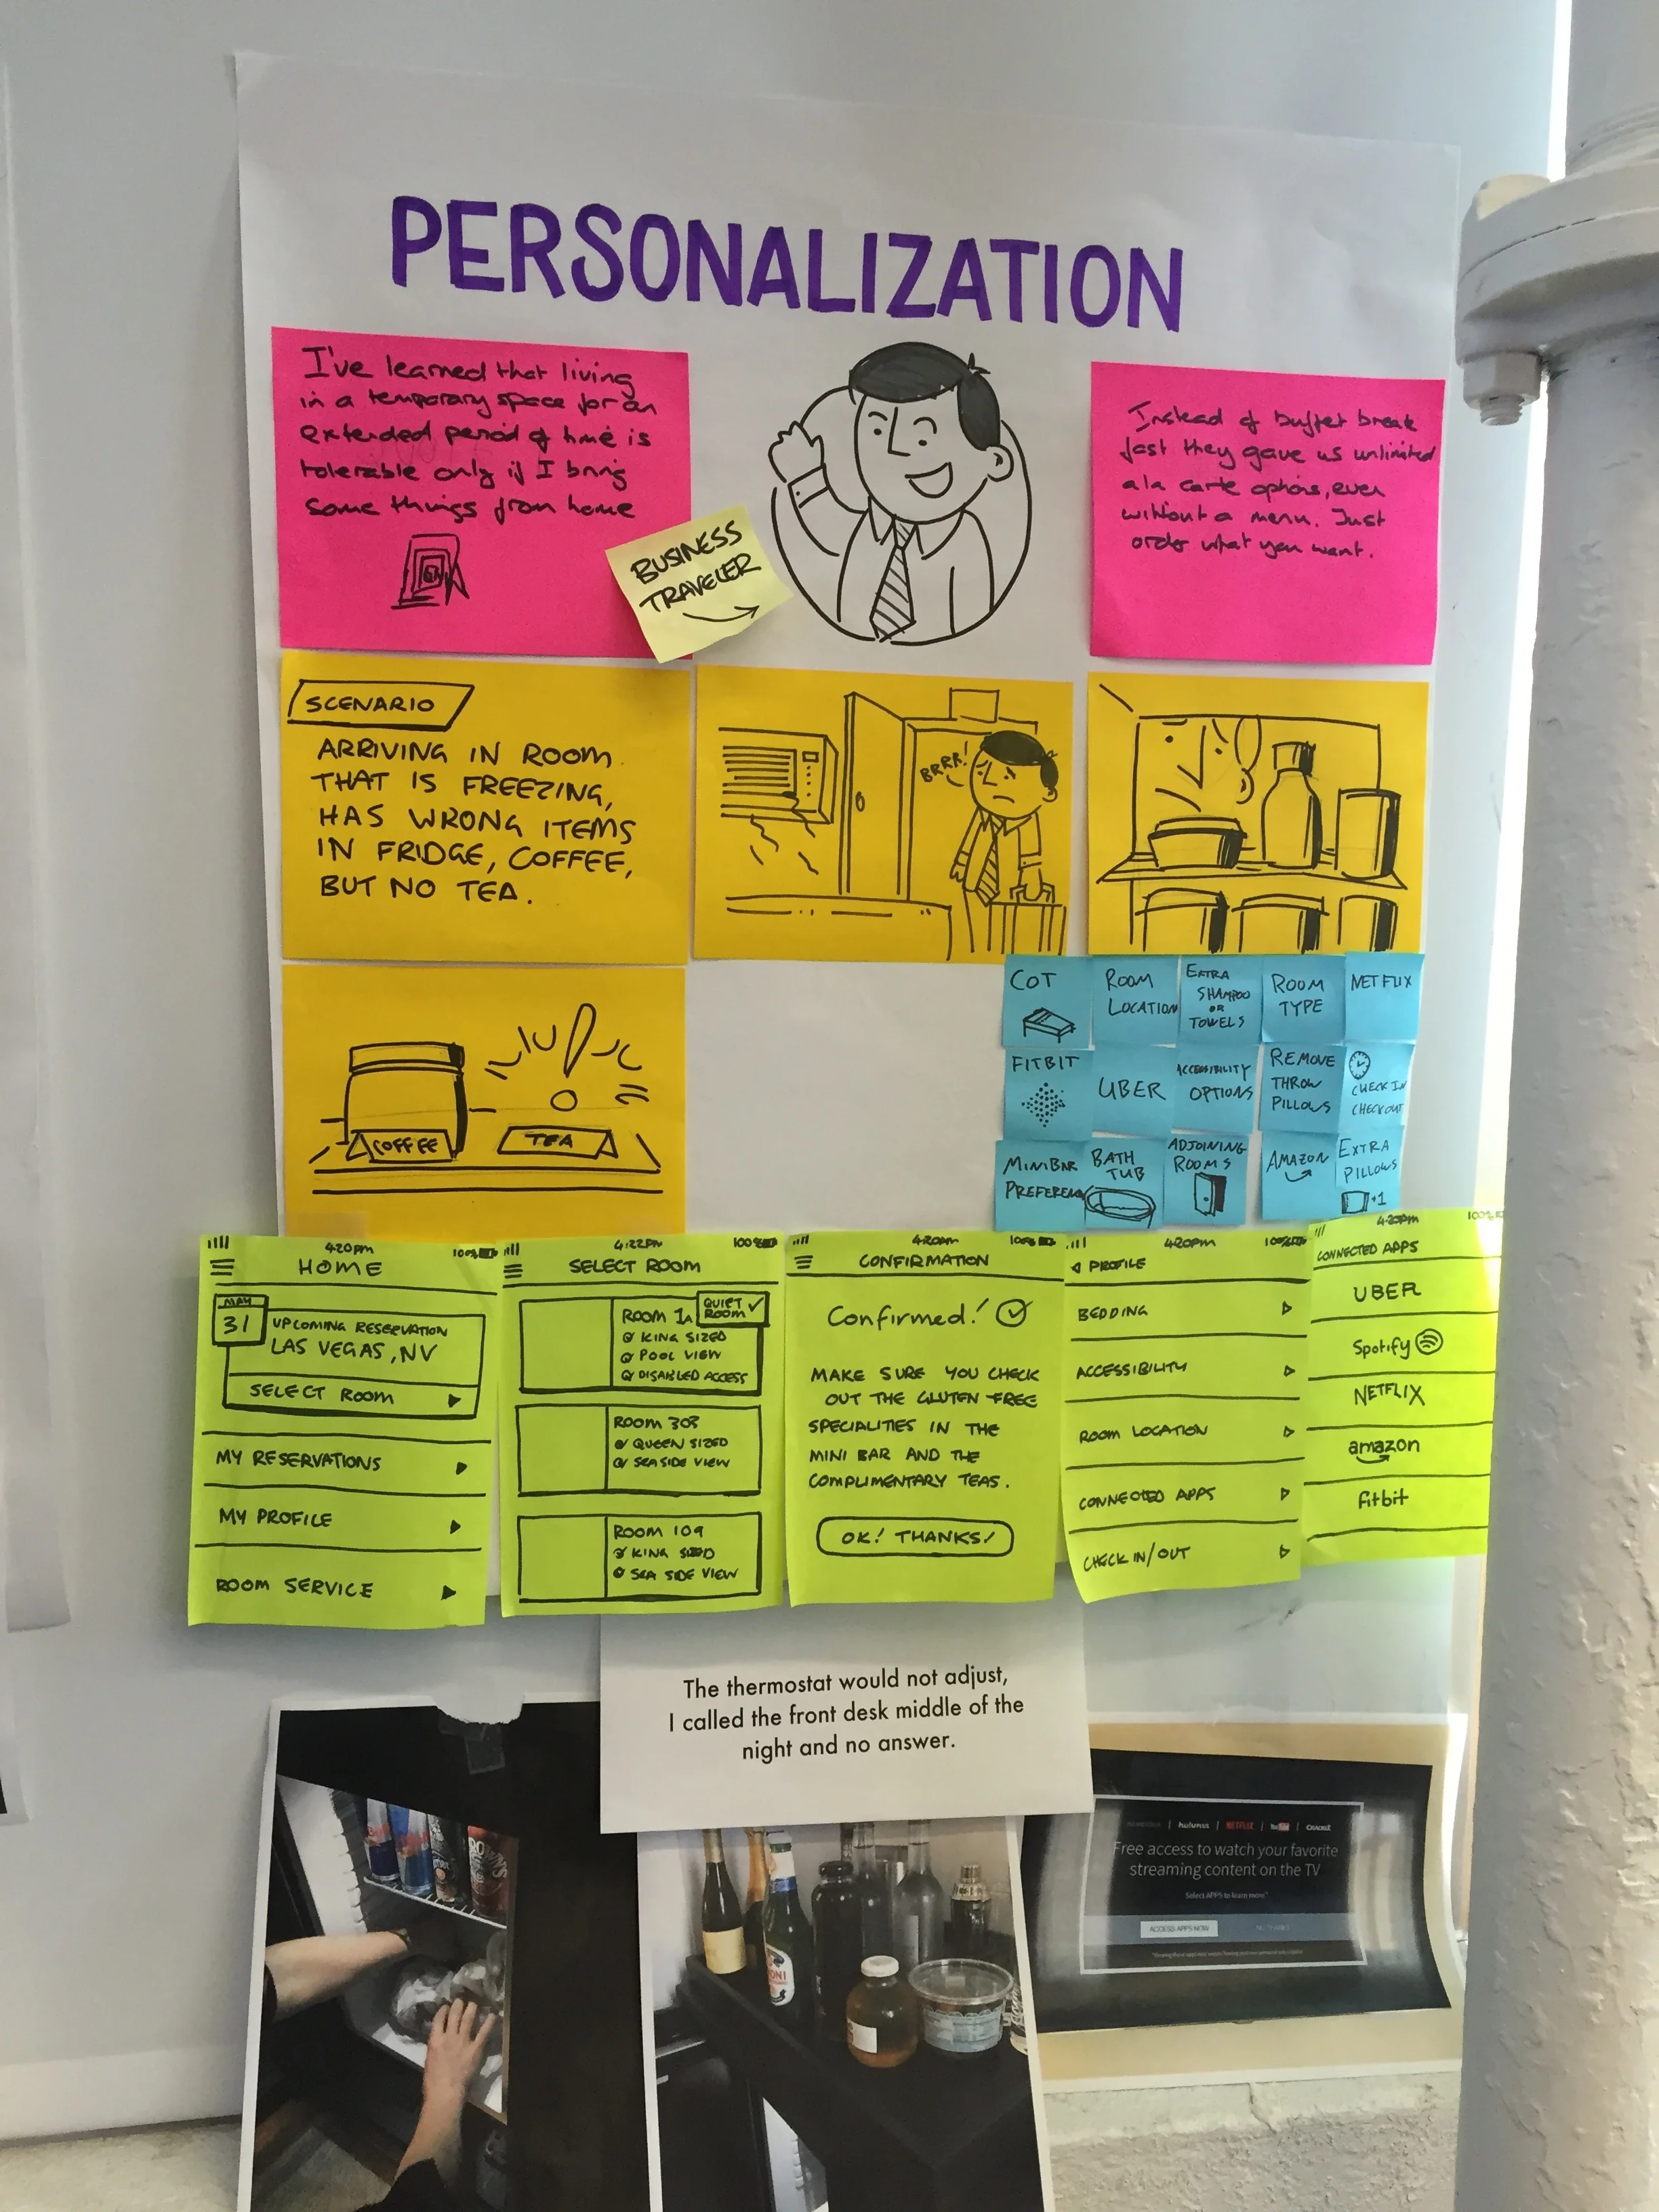 PERSONALIZATION
I've learned that living
in a temporary space for an
extended period of time is
tolerable only if I bring
some things from home
BUSINESS
TRAVELER
Instead of buffet break
fast they gave us unlimited
a la carte options, even
without a menu. Just
order what you want.
SCENARIO
ARRIVING IN ROOM
THAT IS FREEZING,
HAS WRONG ITEMS
IN FRIDGE, COFFEE,
BUT NO TEA.
BRRR!
COFFEE
TEA
COT
ROOM
LOCATION
EXTRA
SHAMPOO
OR
TOWELS
ROOM
TYPE
NETFLIX
FITBIT
UBER
ACCESSIBILITY
OPTIONS
REMOVE
THROW
PILLOWS
CHECK IN
CHECKOUT
MINIBAR
PREFEREN
BATH
TUB
ADJOINING
ROOMS
AMAZON
EXTRA
PILLOWS
+1
420pm 100%
HOME
MAY
31
UPCOMING RESERVATION
LAS VEGAS, NV
SELECT ROOM
MY RESERVATIONS
MY PROFILE
ROOM SERVICE
4:22PM 100%
SELECT ROOM
ROOM 1
QUIET
ROOM
KING SIZED
POOL VIEW
DISABLED ACCESS
ROOM 303
QUEEN SIZED
SEA SIDE VIEW
ROOM 109
KING SIZED
SEA SIDE VIEW
4:20pm 100%
CONFIRMATION
Confirmed!
MAKE SURE YOU CHECK
OUT THE GLUTEN FREE
SPECIALITIES IN THE
MINI BAR AND THE
COMPLIMENTARY TEAS.
OK! THANKS!
420pm 100%
PROFILE
BEDDING
ACCESSIBILITY
ROOM LOCATION
CONNECTED APPS
CHECK IN/OUT
4:20pm 100%
CONNECTED APPS
UBER
Spotify
NETFLIX
amazon
fitbit
The thermostat would not adjust,
I called the front desk middle of the
night and no answer.
huluplus | NETFLIX | YouTube | CRACKLE
Free access to watch your favorite
streaming content on the TV
Select APPS to learn more
ACCESS APPS NOW
NO THANKS